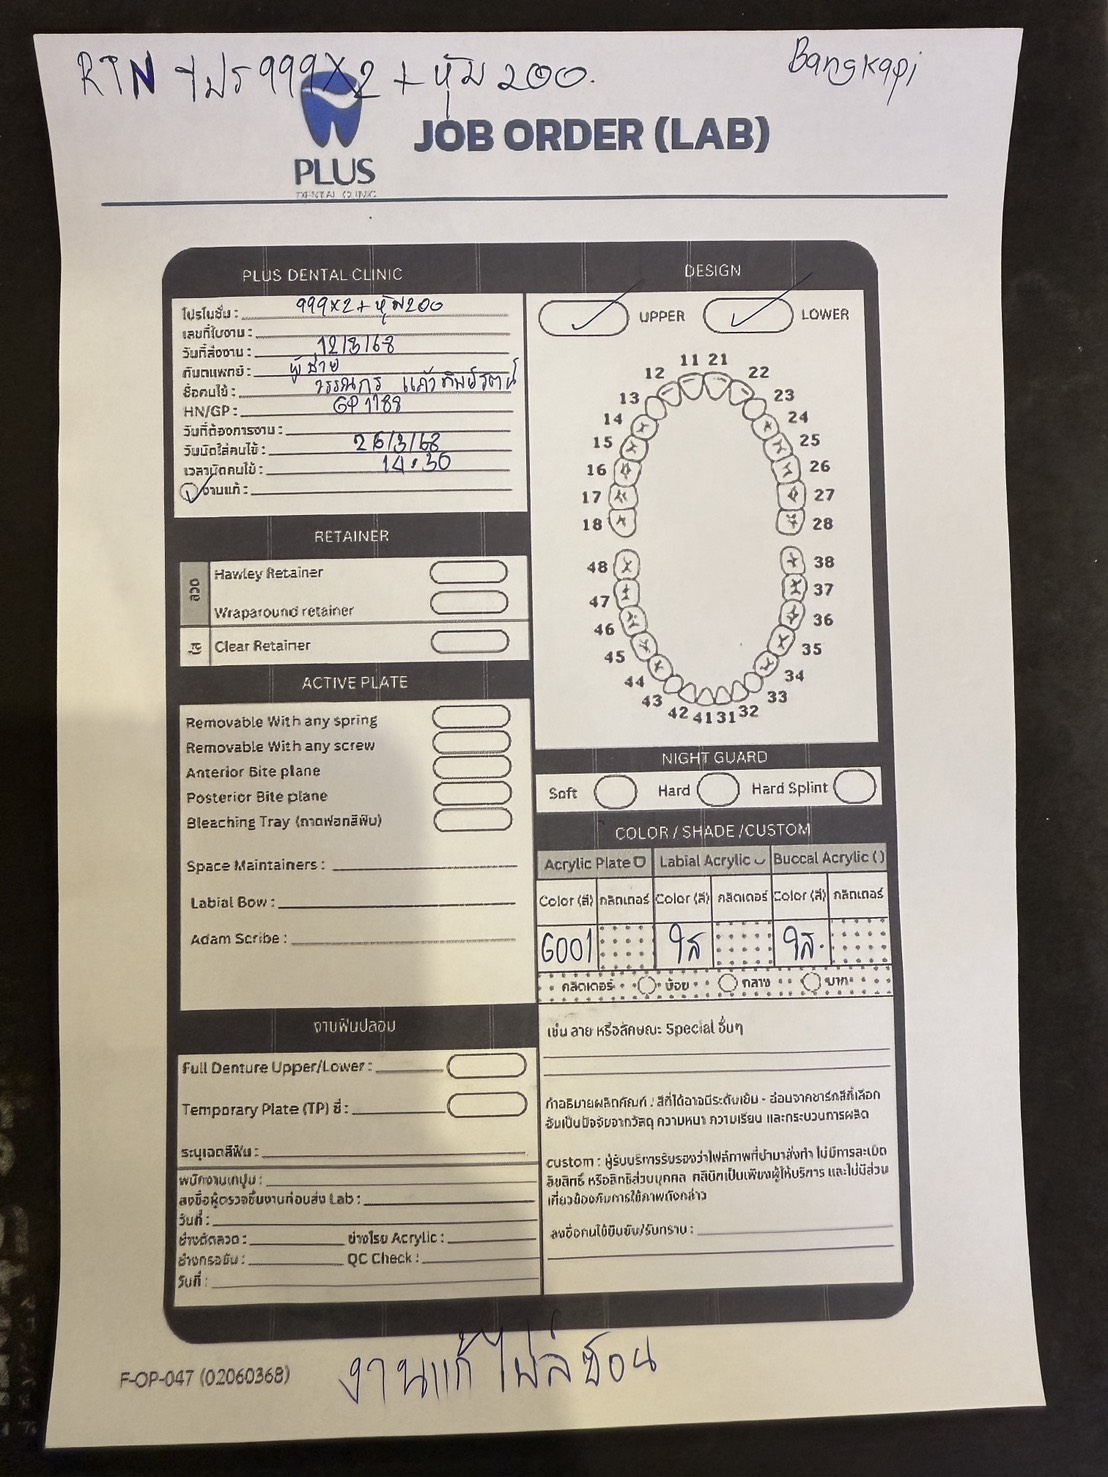 RTN โปร 999x2 + หุ้ม 200.
Bangkapi
PLUS
DENTAL CLINIC
JOB ORDER (LAB)
PLUS DENTAL CLINIC
โปรโมชั่น : 999x2+หุ้ม200
เลขที่ใบงาน :
วันที่ส่งงาน : 12/3/68
ทันตแพทย์ :
ชื่อคนไข้ : วรรณกร แก้วทิพย์รัตน์
HN/GP : GP1188
วันที่ต้องการงาน :
วันนัดใส่คนไข้ : 26/3/68
เวลานัดคนไข้ : 14.30
งานแก้ :
RETAINER
ลวด
Hawley Retainer
Wraparound retainer
ใส
Clear Retainer
ACTIVE PLATE
Removable With any spring
Removable With any screw
Anterior Bite plane
Posterior Bite plane
Bleaching Tray (ถาดฟอกสีฟัน)
Space Maintainers :
Labial Bow :
Adam Scribe :
งานฟันปลอม
Full Denture Upper/Lower :
Temporary Plate (TP) ซี่ :
ระบุเฉดสีฟัน :
พนักงานเทปูน :
ลงชื่อผู้ตรวจชิ้นงานก่อนส่ง Lab :
วันที่ :
ช่างดัดลวด : ช่างโรย Acrylic :
ช่างกรอขัด : QC Check :
วันที่ :
DESIGN
UPPER LOWER
11 21
12 22
13 23
14 24
15 25
16 26
17 27
18 28
48 38
47 37
46 36
45 35
44 34
43 33
42 41 31 32
NIGHT GUARD
Soft Hard Hard Splint
COLOR / SHADE /CUSTOM
Acrylic Plate Labial Acrylic Buccal Acrylic ( )
Color (สี) กลิตเตอร์ Color (สี) กลิตเตอร์ Color (สี) กลิตเตอร์
G001 ใส ใส.
กลิตเตอร์ น้อย กลาง มาก
เช่น ลาย หรือลักษณะ Special อื่นๆ
คำอธิบายผลิตภัณฑ์ : สีที่ได้อาจมีระดับเข้ม - อ่อนจากชาร์ทสีที่เลือก
อันเป็นปัจจัยจากวัสดุ ความหนา ความเรียบ และกระบวนการผลิต
custom : ผู้รับบริการรับรองว่าไฟล์ภาพที่นำมาสั่งทำ ไม่มีการละเมิด
ลิขสิทธิ์ หรือสิทธิส่วนบุคคล คลินิกเป็นเพียงผู้ให้บริการ และไม่มีส่วน
เกี่ยวข้องกับการใช้ภาพดังกล่าว
ลงชื่อคนไข้ยืนยัน/รับทราบ :
F-OP-047 (02060368)
งานแก้ ไฟล์ซ้อน